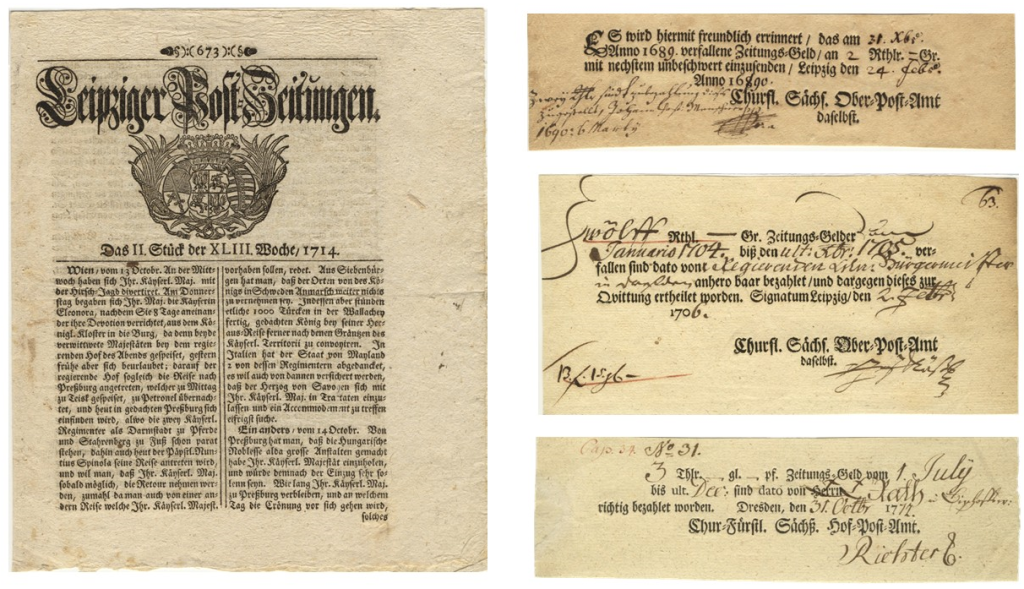 §):(673):(§
Leipziger Post-Zeitungen.
Das II. Stück der XLIII. Woche/ 1714.
Wien/ vom 13 Octobr. An der Mitt-
woch haben sich Ihr. Käyserl. Maj. mit
der Hirsch-Jagd divertiret. Am Donner-
stag begaben sich Ihr. Maj. die Käyserin
Eleonora, nachdem Sie 8 Tage aneinan-
der ihre Devotion verrichtet, aus dem Kö-
nigl. Kloster in die Burg, da denn beyde
verwittwete Majestäten bey dem regie-
renden Hof des Abends gespeiset, gestern
frühe aber sich beurlaubet; darauf der
regierende Hof sogleich die Reise nach
Preßburg angetreten, welcher zu Mittag
zu Teisk gespeiset, zu Petronel übernach-
tet, und heut in gedachten Preßburg sich
einfinden wird, alwo die zwey Käyserl.
Regimenter als Darmstadt zu Pferde
und Stahrenberg zu Fuß schon parat
stehen, dahin auch heut der Päpstl. Nun-
tius Spinola seine Reise antreten wird,
und wil man, daß Ihr. Käyserl. Maj.
sobald möglich, die Retour nehmen wer-
den, zumahl da man auch von einer an-
dern Reise welche Ihr. Käyserl. Majest.
vorhaben sollen, redet. Aus Siebenbür-
gen hat man, daß der Orten von des Kö-
nigs in Schweden Anmarsch weiter nichts
zu vernehmen sey. Indessen aber stünden
etliche 1000 Türcken in der Wallachey
fertig, gedachten König bey seiner Her-
aus-Reise ferner nach denen Gräntzen des
Käyserl. Territorii zu convoyiren. In
Italien hat der Staat von Mayland
2 von dessen Regimentern abgedancket,
es wil auch von dannen versichert werden,
daß der Herzog von Savojen sich mit
Ihr. Käyserl. Maj. in Tractaten einzu-
lassen und ein Accommodement zu treffen
eifrigst suche.
Ein anders/ vom 14 Octobr. Von
Preßburg hat man, daß die Hungarische
Noblesse alda grosse Anstalten gemacht
habe Ihr. Käyserl. Majestät einzuholen,
und würde demnach der Einzug sehr so-
lenn seyn. Wie lang Ihr. Käyserl. Maj.
zu Preßburg verbleiben, und an welchem
Tag die Crönung vor sich gehen wird,
solches
ES wird hiermit freundlich errinnert/ das am 31. Xbr.
Anno 1689. verfallene Zeitungs-Geld/ an 2 Rthlr. – Gr.
mit nechstem unbeschwert einzusenden/ Leipzig den 24. Febr.
Anno 1690.
Churfl. Sächs. Ober-Post-Amt
daselbst.
1690: 6 Marty
63.
Zwölff Rthl. — Gr. Zeitungs-Gelder
Januario 1704. biß den ult. Xbr. 1705. ver-
fallen sind dato von Regierenden Bürgermeister
in anhero baar bezahlet/ und dargegen dieses zur
Qvittung ertheilet worden. Signatum Leipzig/ den 2. Febr.
1706.
Churfl. Sächs. Ober-Post-Amt
daselbst.
Cap. 37. No 31.
3 Thlr. — gl. — pf. Zeitungs-Geld vom 1. July
bis ult. Dec: sind dato von Herrn Rath
richtig bezahlet worden. Dresden, den 31. Octbr 177
Chur-Fürstl. Sächß. Hof-Post-Amt.
Richter